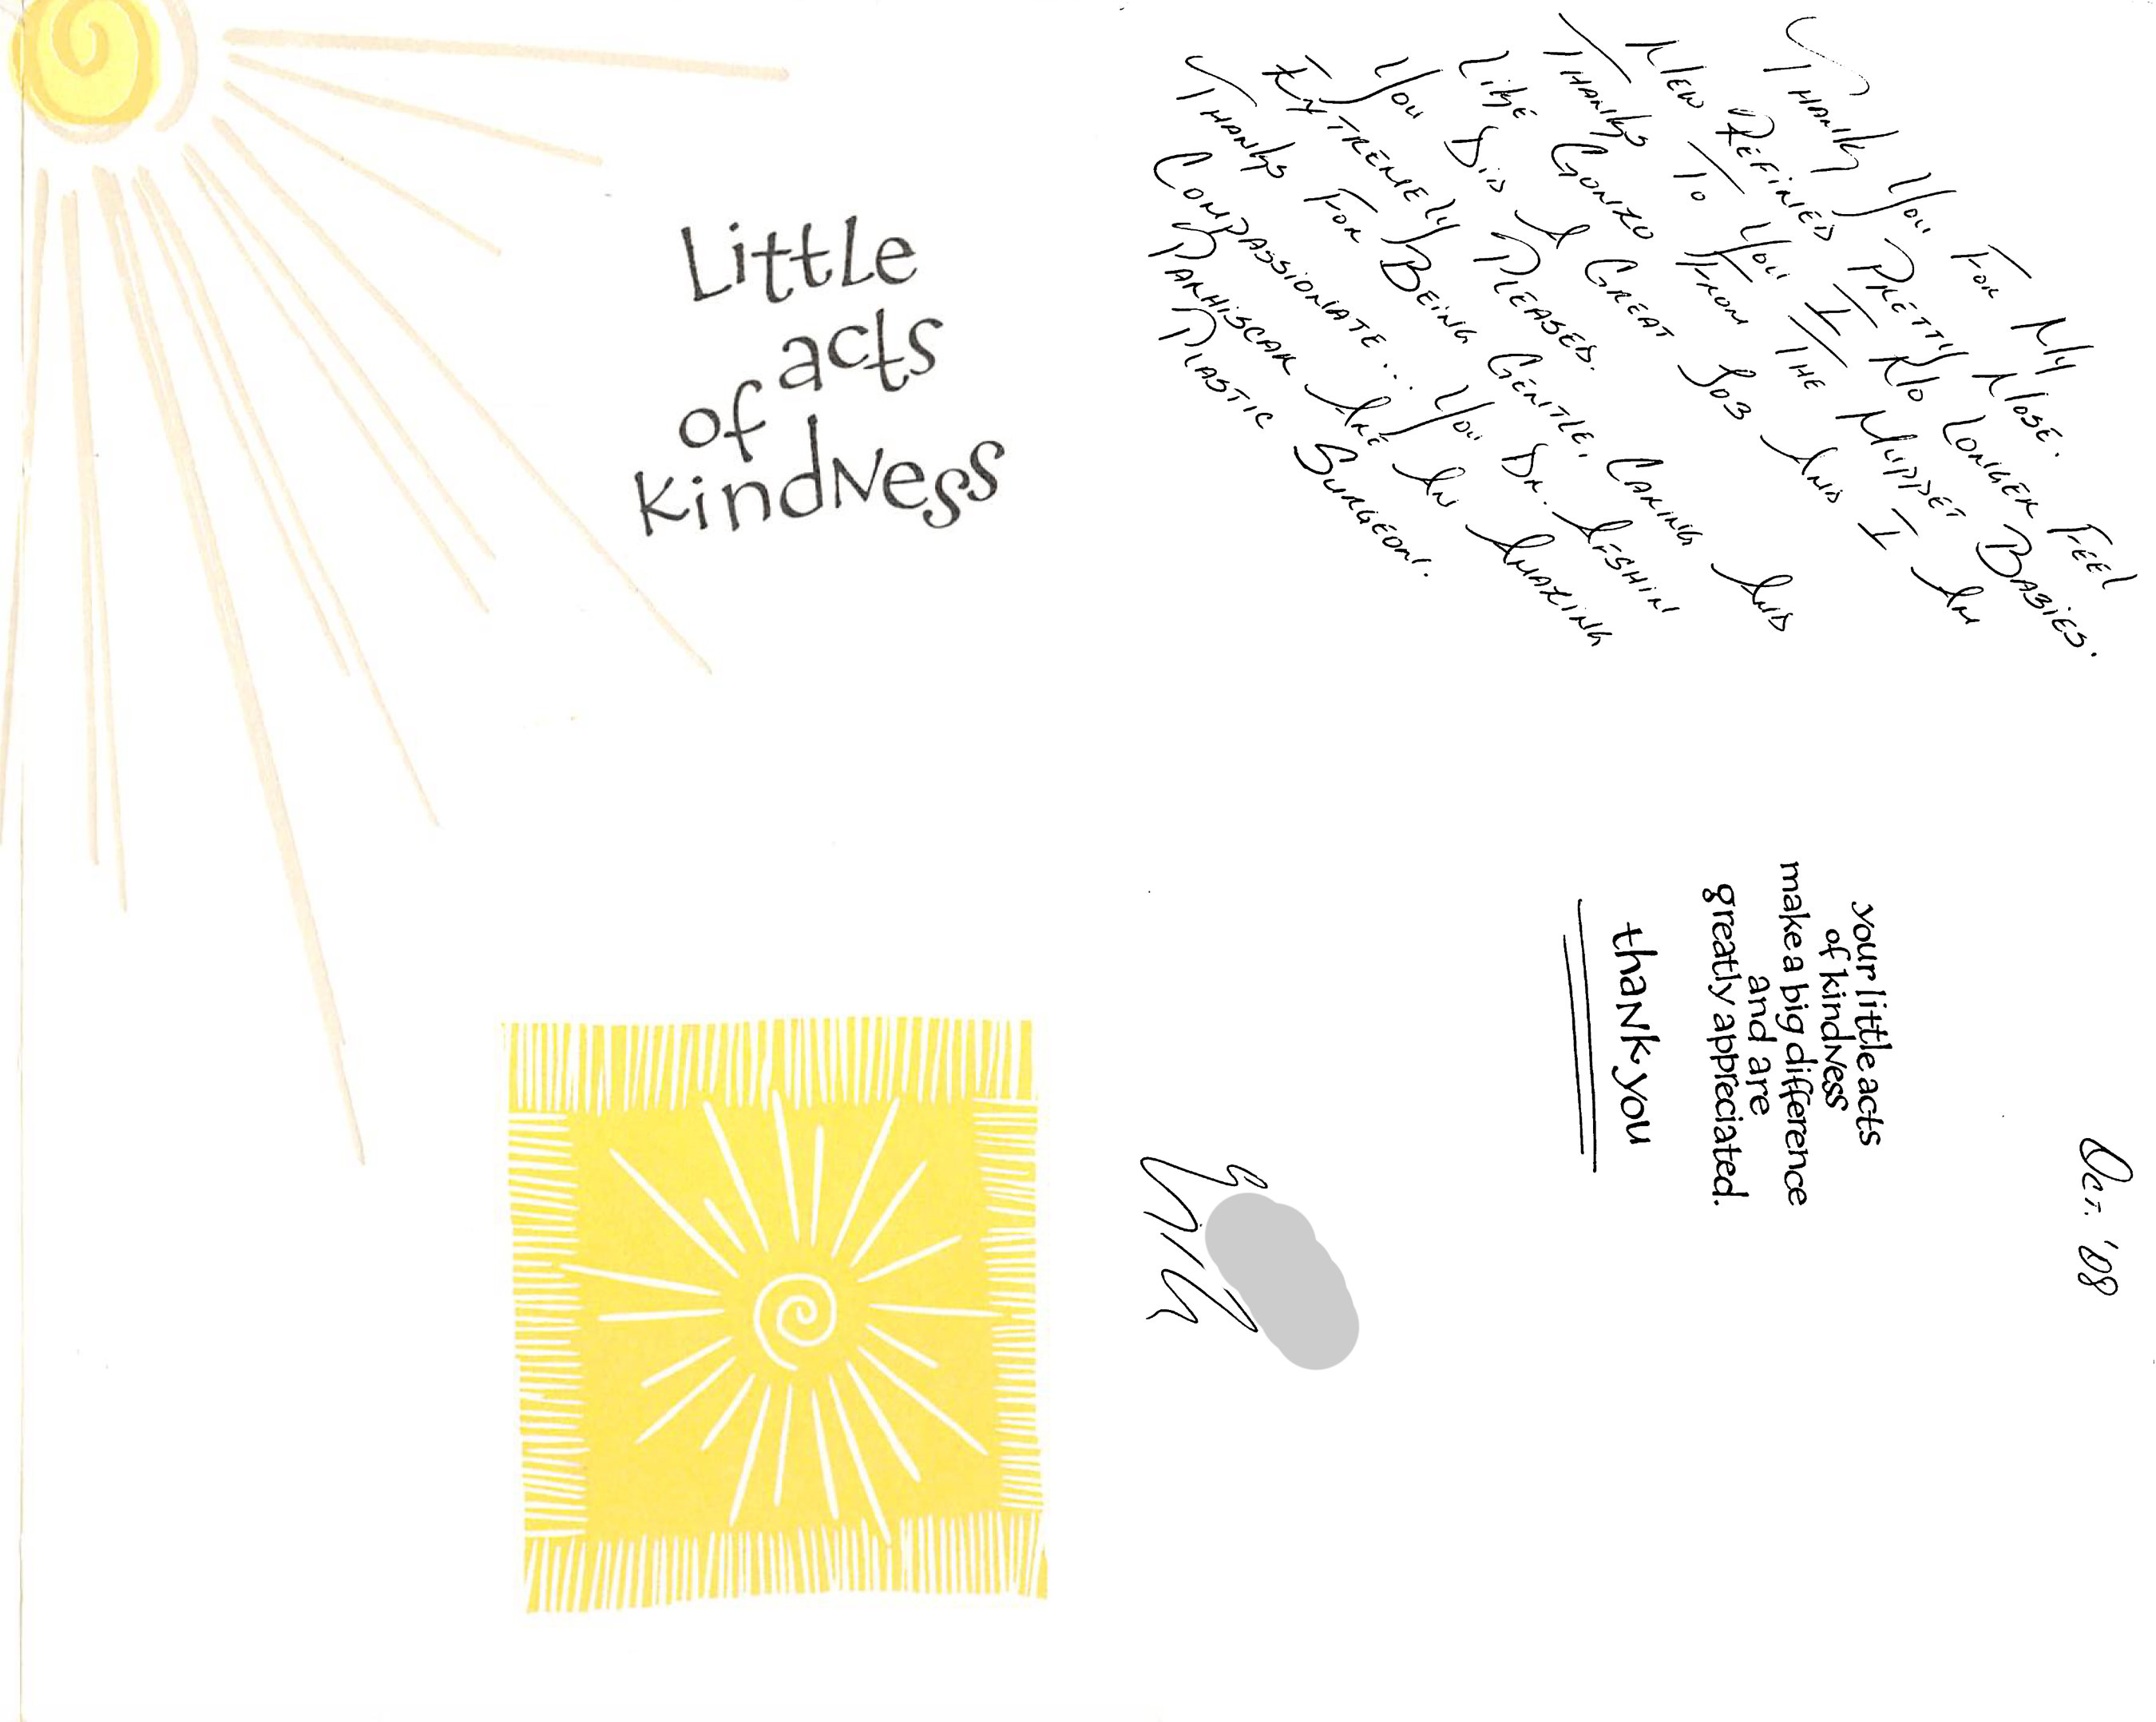 Little
acts
of
kindness
Oct. '08
Thank You For My
New "Refined Pretty Nose.
Thanks To You I No Longer Feel
Like Gonzo From The Muppet Babies.
You Did A Great Job And I Am
Extremely Pleased.
Thanks For Being Gentle, Caring And
Compassionate... You Dr. Afshin
Parhiscar Are An Amazing
Plastic Surgeon.
your little acts
of kindness
make a big difference
and are
greatly appreciated.
thank you